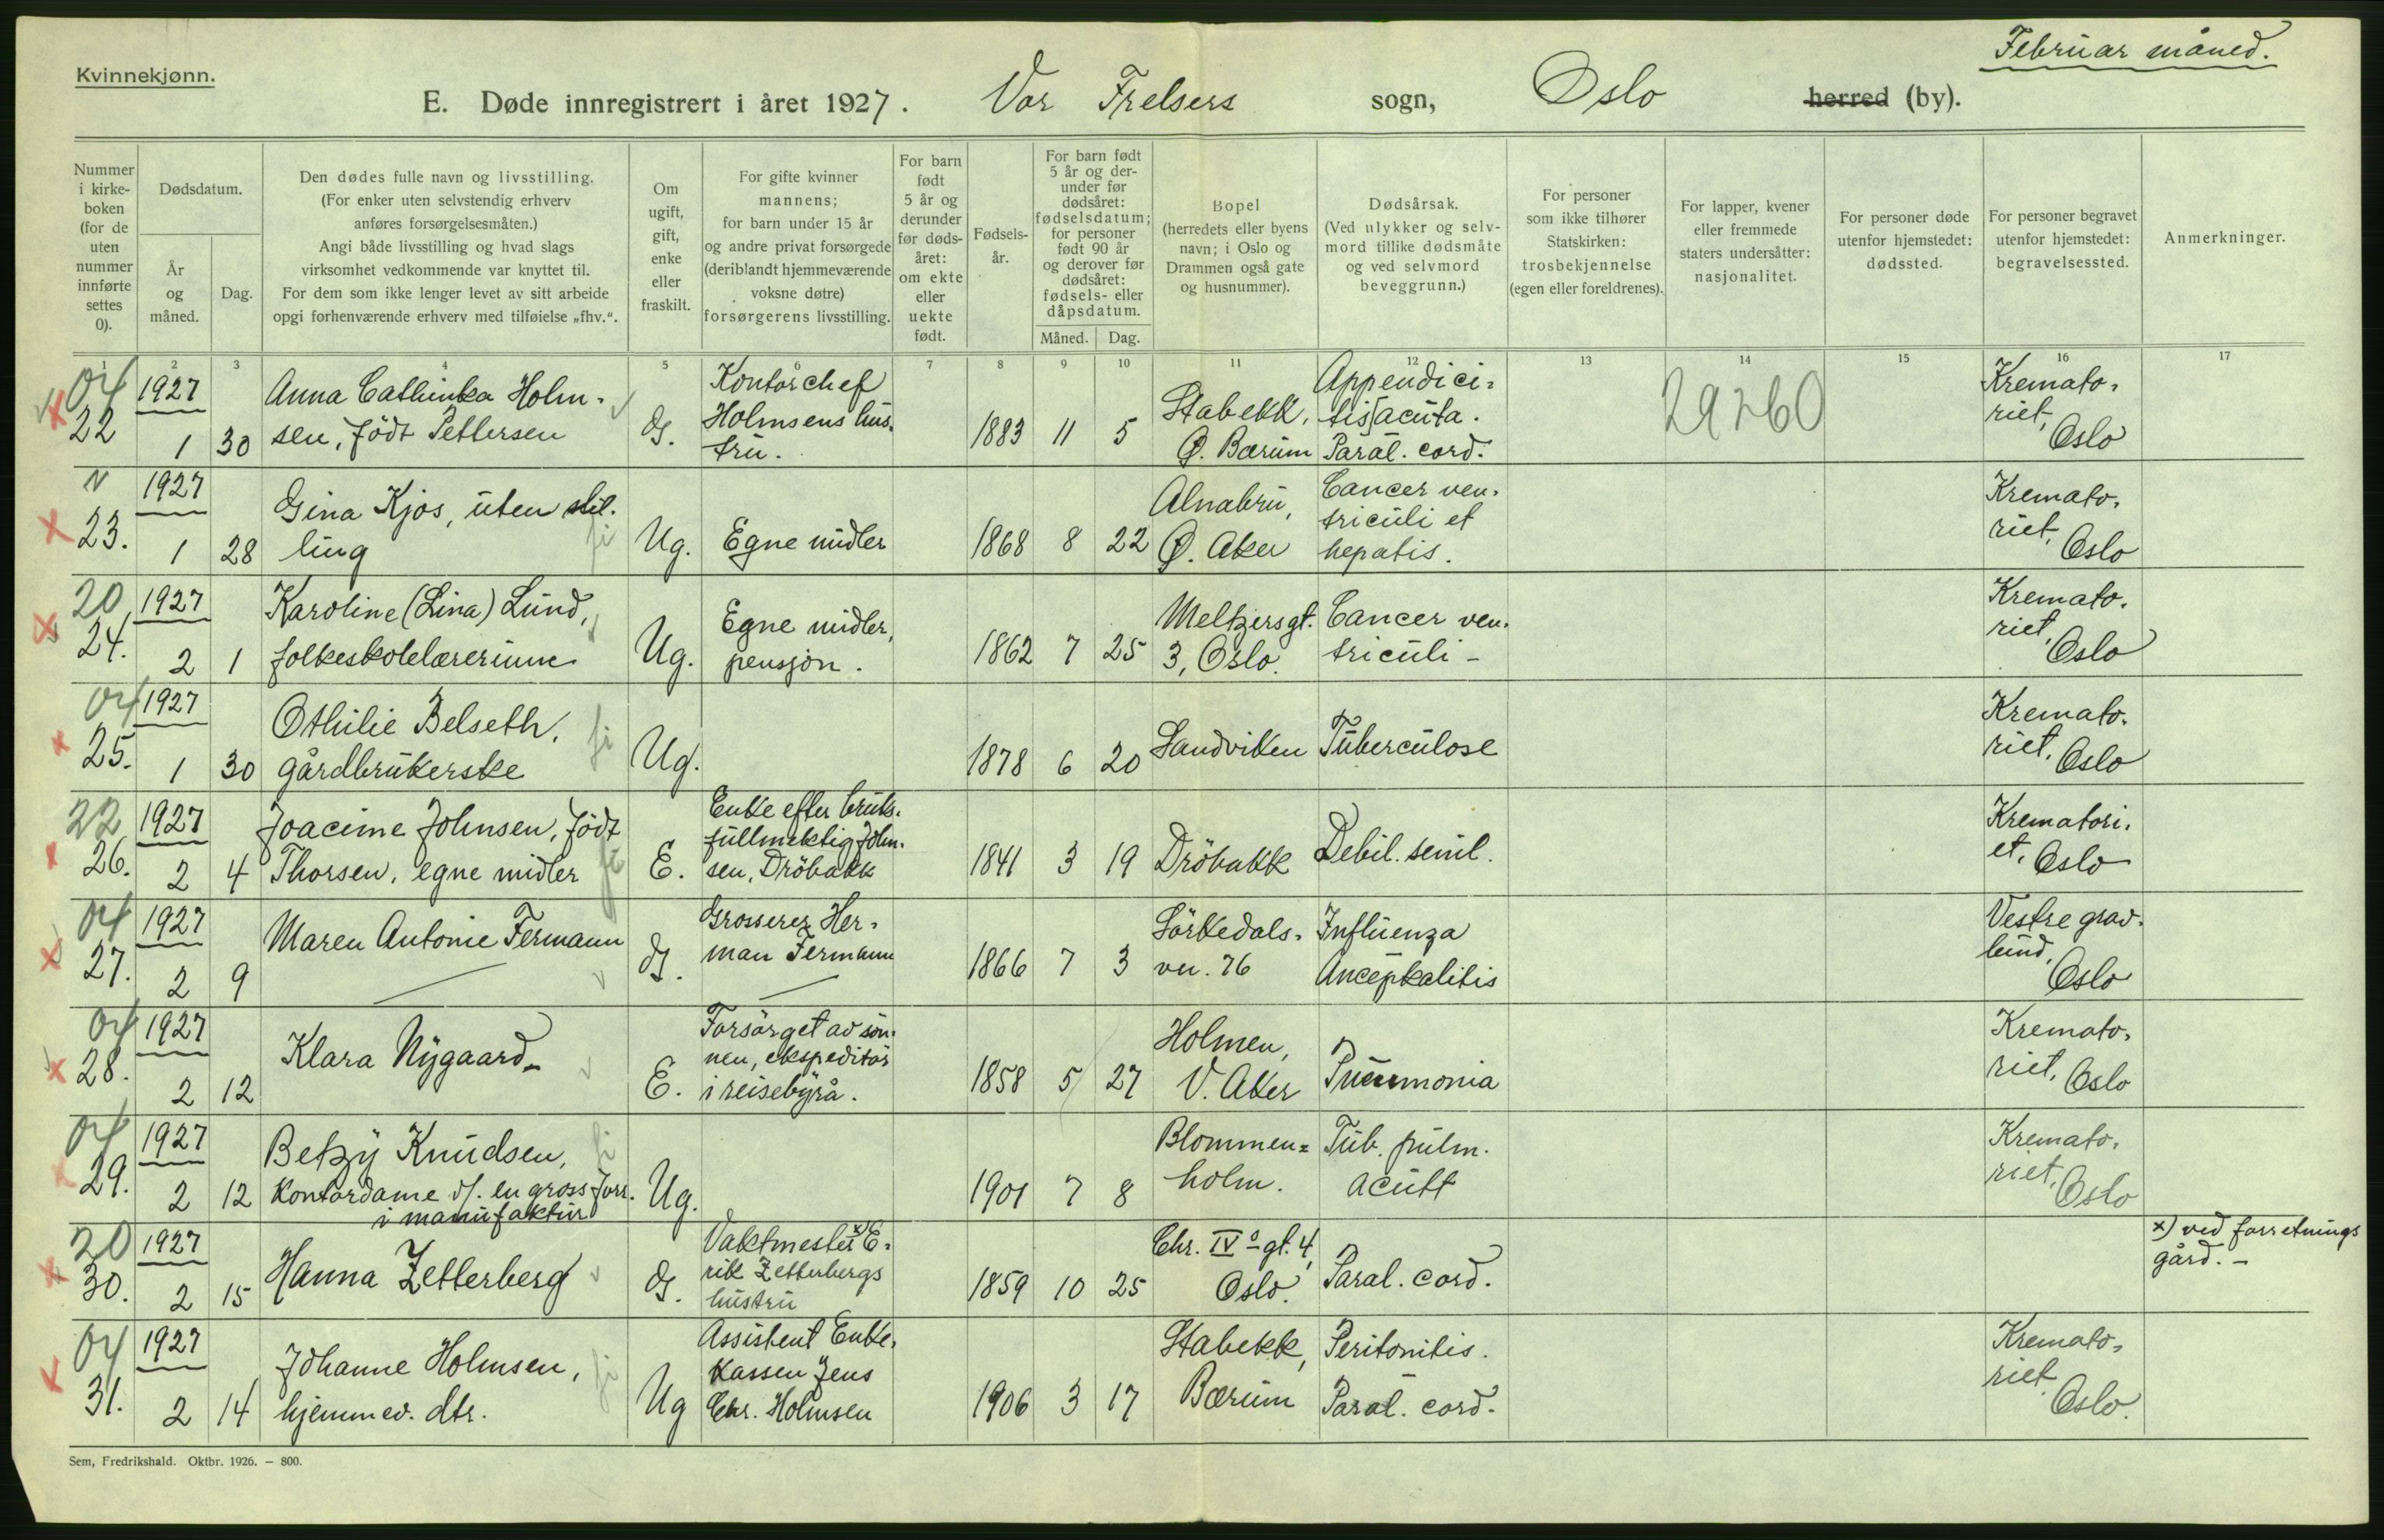 Februar måned.
Kvinnekjønn.
E. Døde innregistrert i året 1927. Vor Frelsers sogn, Oslo herred (by).
Nummer i kirke-boken (for de uten nummer innførte settes 0).
Dødsdatum.
År og måned.
Dag.
Den dødes fulle navn og livsstilling.
(For enker uten selvstendig erhverv
anføres forsørgelsesmåten.)
Angi både livsstilling og hvad slags
virksomhet vedkommende var knyttet til.
For dem som ikke lenger levet av sitt arbeide
opgi forhenværende erhverv med tilføielse „fhv.“.
Om ugift, gift, enke eller fraskilt.
For gifte kvinner
mannens;
for barn under 15 år
og andre privat forsørgede
(deriblandt hjemmeværende
voksne døtre)
forsørgerens livsstilling.
For barn født 5 år og derunder før døds-året: om ekte eller uekte født.
Fødsels-år.
For barn født
5 år og der-
under før
dødsåret:
fødselsdatum;
for personer
født 90 år
og derover før
dødsåret:
fødsels- eller
dåpsdatum.
Måned. Dag.
Bopel
(herredets eller byens
navn; i Oslo og
Drammen også gate
og husnummer).
Dødsårsak.
(Ved ulykker og selv-
mord tillike dødsmåte
og ved selvmord
beveggrunn.)
For personer
som ikke tilhører
Statskirken:
trosbekjennelse
(egen eller foreldrenes).
For lapper, kvener
eller fremmede
staters undersåtter:
nasjonalitet.
For personer døde
utenfor hjemstedet:
dødssted.
For personer begravet
utenfor hjemstedet:
begravelsessted.
Anmerkninger.
1 2 3 4 5 6 7 8 9 10 11 12 13 14 15 16 17
22 1927 1 30
Anna Cathinka Holm-
sen, født Pettersen
G.
Kontorchef
Holmsens hus-
tru.
1883 11 5
Stabekk,
Ø. Bærum
Appendici-
tis acuta.
Paral. cord.
29260
Kremato-
riet,
Oslo
23. 1927 1 28
Gina Kjos, uten stil-
ling
Ug.
Egne midler
1868 8 22
Alnabru,
Ø. Aker
Cancer ven-
triculi et
hepatis.
Kremato-
riet,
Oslo
20
24. 1927 2 1
Karoline (Lina) Lund,
folkeskolelærerinne
Ug.
Egne midler,
pensjon.
1862 7 25
Meltzersgt.
3, Oslo.
Cancer ven-
triculi -
Kremato-
riet,
Oslo
25. 1927 1 30
Othilie Belseth,
gårdbrukerske
Ug.
1878 6 20
Sandviken
Tuberculose
Kremato-
riet,
Oslo
22
26. 1927 2 4
Joacime Johnsen, født
Thorsen, egne midler
E.
Enke efter bruks-
fullmektig John-
sen, Drøbakk
1841 3 19
Drøbakk
Debil. senil.
Krematori-
et, Oslo
27. 1927 2 9
Maren Antonie Fermann
G.
Grosserer Her-
man Fermann
1866 7 3
Sørkedals-
vn. 76
Influenza
Ancephalitis
Vestre grav-
lund,
Oslo
28. 1927 2 12
Klara Nygaard
E.
Forsørget av søn-
nen, ekspeditør
i reisebyrå.
1858 5 27
Holmen,
V. Aker
Pneumonia
Kremato-
riet, Oslo
29. 1927 2 12
Betzy Knudsen,
kontordame v/. en gross forr.
i manufaktur
Ug.
1901 7 8
Blommen-
holm.
Tub. pulm.
acutt
Kremato-
riet,
Oslo
20
30. 1927 2 15
Hanna Zetterberg
G.
Vaktmester x) E-
rik Zetterbergs
hustru
1859 10 25
Chr. IVs gt. 4,
Oslo.
Paral. cord.
x) ved forretnings
gård. -
31. 1927 2 14
Johanne Holmsen,
hjemmev. dtr.
Ug
Assistent Enke-
kassen Jens
Chr. Holmsen
1906 3 17
Stabekk,
Bærum
Peritonitis.
Paral. cord.
Kremato-
riet
Oslo.
Sem, Fredrikshald. Oktbr. 1926. — 800.